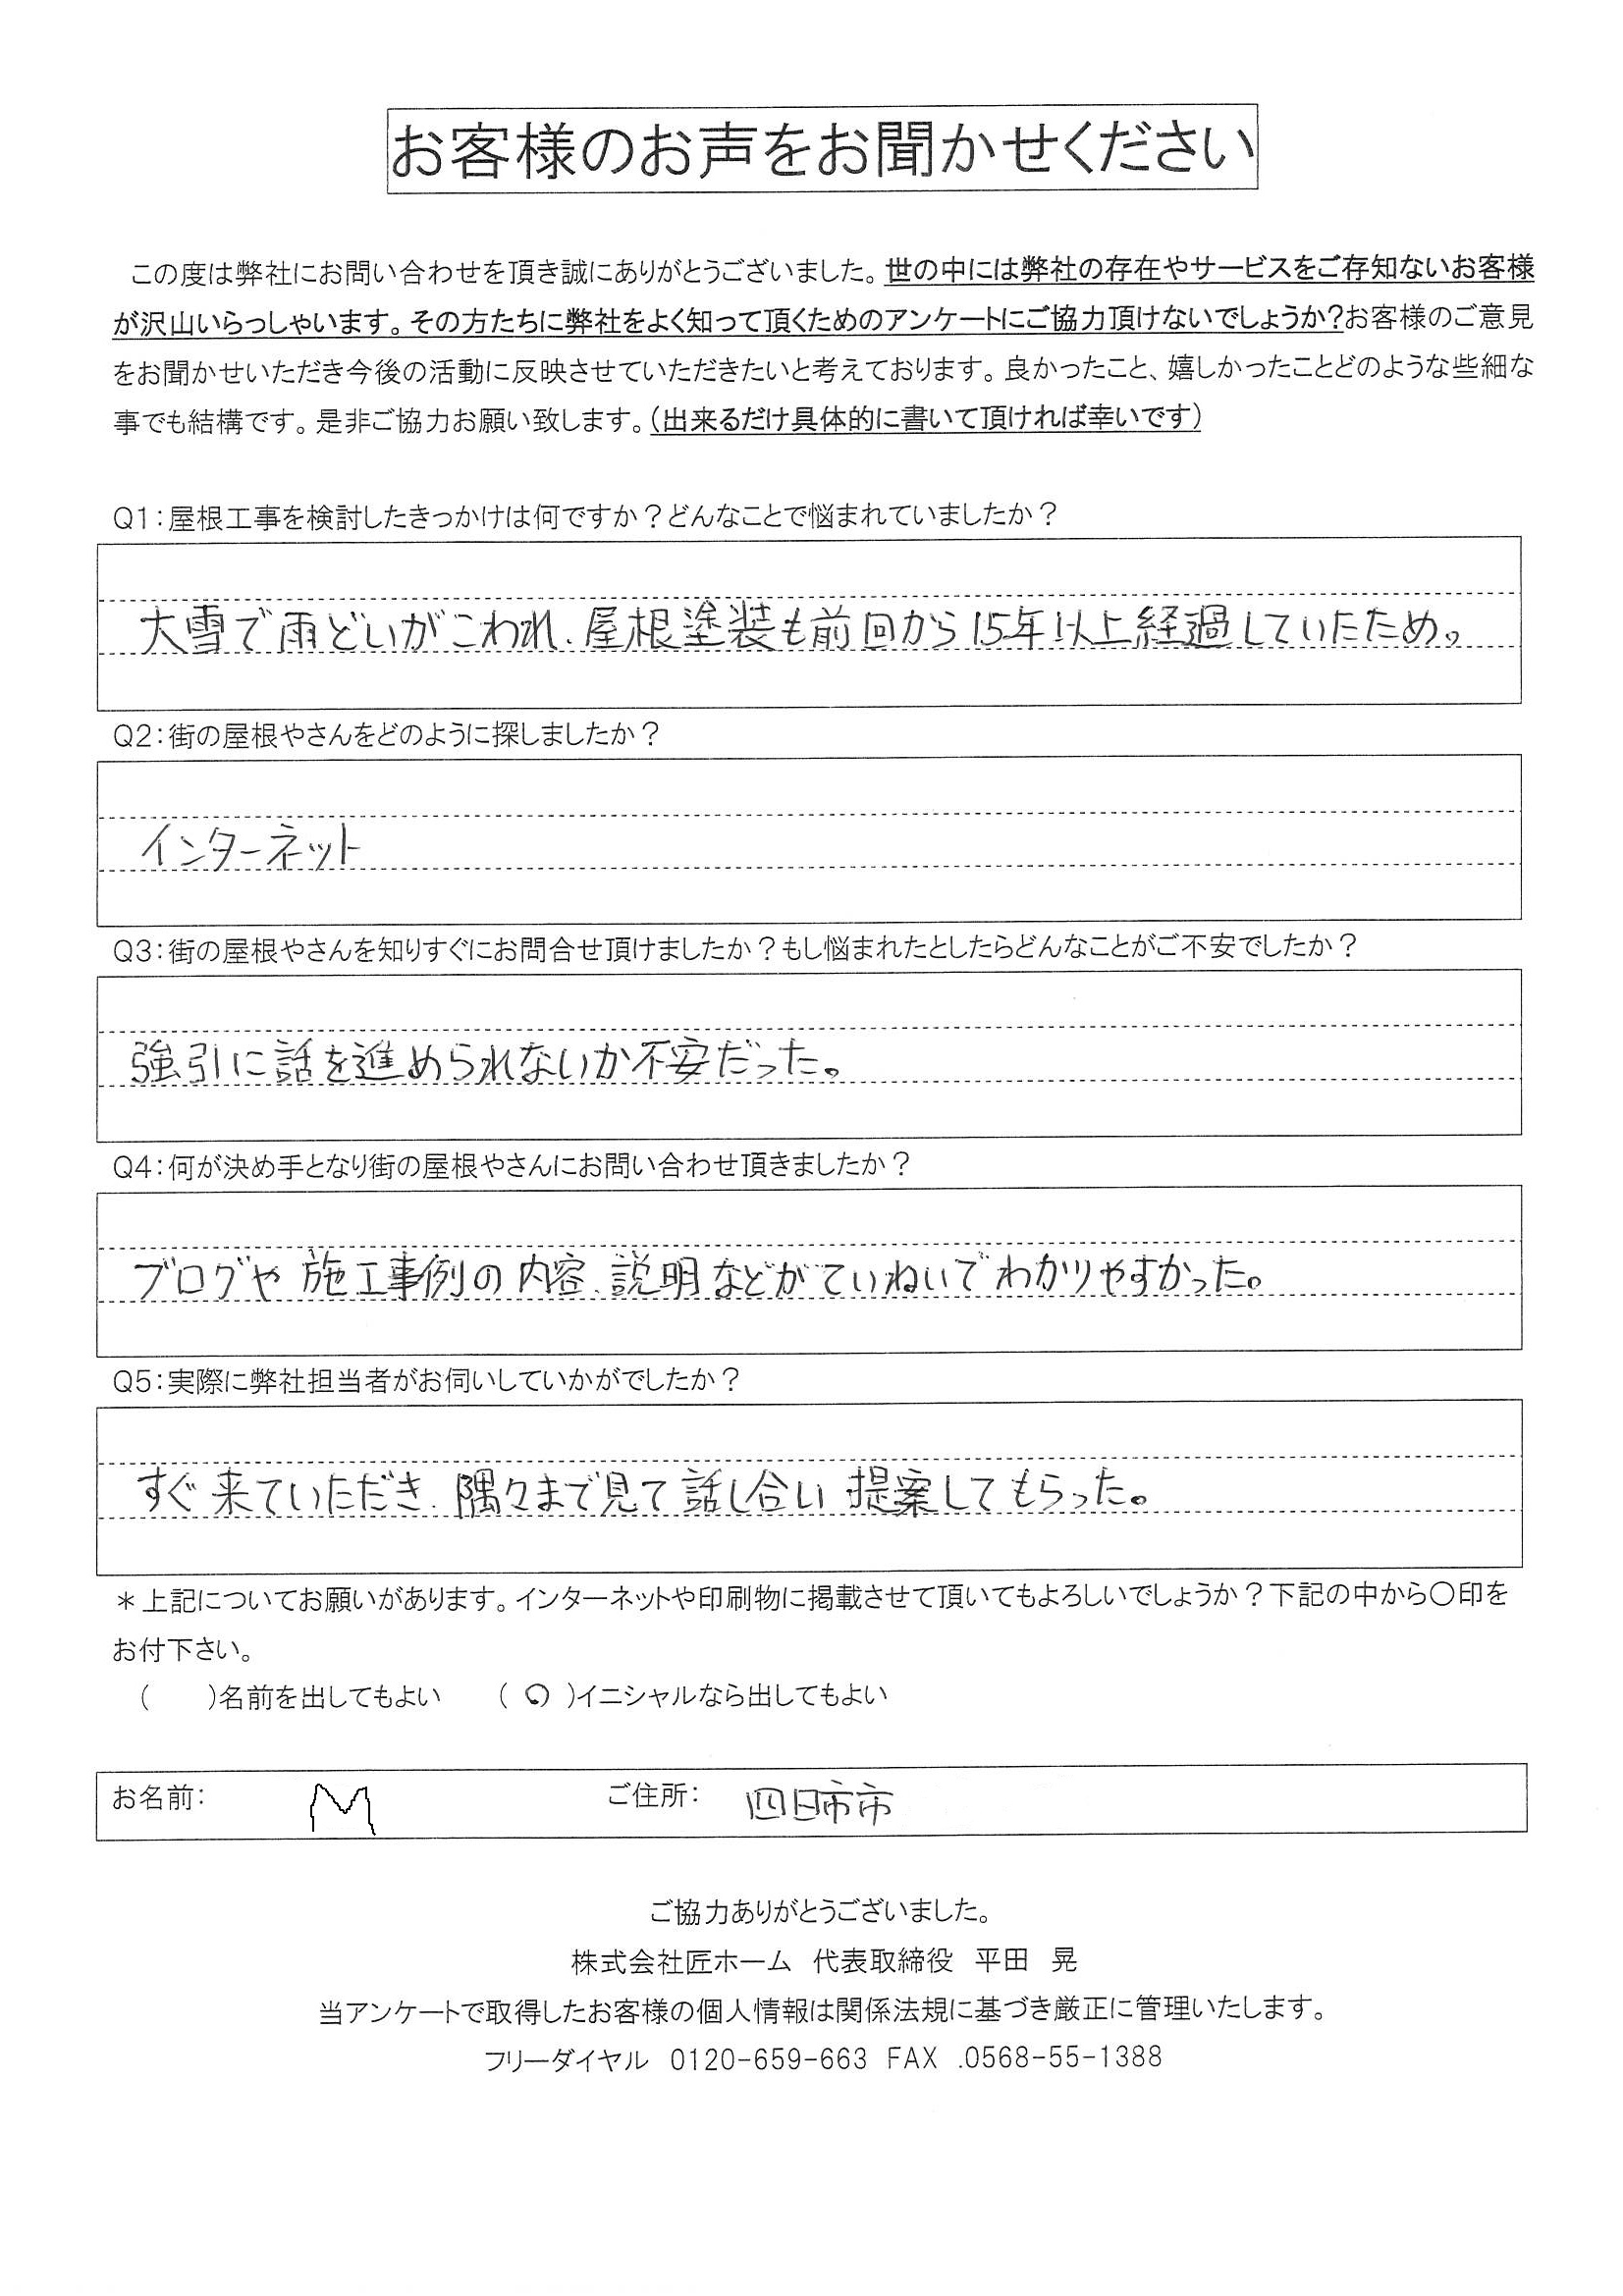 お客様のお声をお聞かせください
この度は弊社にお問い合わせを頂き誠にありがとうございました。世の中には弊社の存在やサービスをご存知ないお客様
が沢山いらっしゃいます。その方たちに弊社をよく知って頂くためのアンケートにご協力頂けないでしょうか?お客様のご意見
をお聞かせいただき今後の活動に反映させていただきたいと考えております。良かったこと、嬉しかったことどのような些細な
事でも結構です。是非ご協力お願い致します。(出来るだけ具体的に書いて頂ければ幸いです)
Q1:屋根工事を検討したきっかけは何ですか?どんなことで悩まれていましたか?
大雪で雨どいがこわれ、屋根塗装も前回から15年以上経過していたため。
Q2:街の屋根やさんをどのように探しましたか?
インターネット
Q3:街の屋根やさんを知りすぐにお問合せ頂けましたか?もし悩まれたとしたらどんなことがご不安でしたか?
強引に話を進められないか不安だった。
Q4:何が決め手となり街の屋根やさんにお問い合わせ頂きましたか?
ブログや施工事例の内容、説明などがていねいでわかりやすかった。
Q5:実際に弊社担当者がお伺いしていかがでしたか?
すぐ来ていただき、隅々まで見て話し合い提案してもらった。
*上記についてお願いがあります。インターネットや印刷物に掲載させて頂いてもよろしいでしょうか?下記の中から〇印を
お付下さい。
(　　)名前を出してもよい　　(〇)イニシャルなら出してもよい
お名前: M　ご住所: 四日市市
ご協力ありがとうございました。
株式会社匠ホーム　代表取締役　平田　晃
当アンケートで取得したお客様の個人情報は関係法規に基づき厳正に管理いたします。
フリーダイヤル 0120-659-663 FAX .0568-55-1388